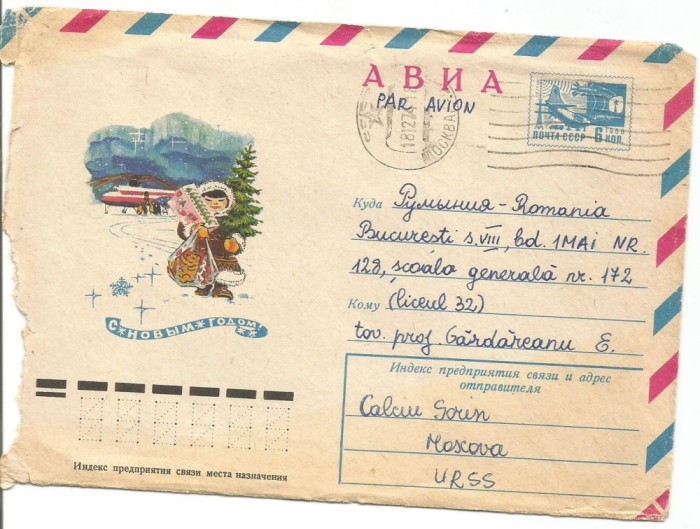 АВИА
PAR AVION
МОСКВА
ПОЧТА СССР
1966
6 КОП.
Куда Румыния - Romania
Bucureşti s. VIII, bd. 1 MAI NR.
128, şcoala generală nr. 172
Кому (liceul 32)
tov. prof Gărdăreanu E.
С НОВЫМ ГОДОМ!
Индекс предприятия связи и адрес
отправителя
Calciu Sorin
Moscova
URSS
Индекс предприятия связи места назначения